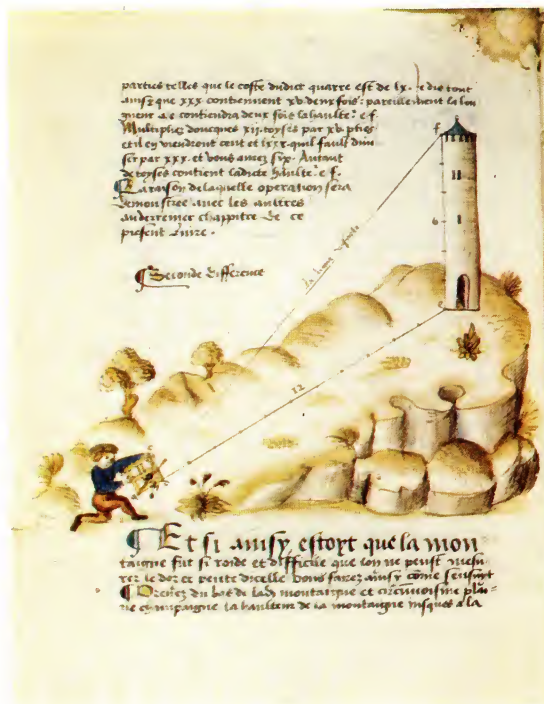 parties telles que le coste dudict quarre est de lx. Je dis tout
ainsy que xxx contiennent xv. deux fois: pareillement la lon
gueur a e contiendra deux fois la haulte. e f.
Multipliez doncques xij. toyses par xv. pties
et il en viendront cent et lxxx. quil fault divi
ser par xxx. et vous aurez syx. Autant
de toyses contient ladicte haulte. e f.
La raison de laquelle operation sera
demonstree avec les aultres
au dernier chappitre de ce
present livre.
f
la ligne visuale
6
Seconde difference
e
12
Et si ainsy estoyt que la mon
taigne fut si roide et difficile que lon ne peust mesu
rer le dos et pente dicelle vous ferez ainsy come sensuyt
Prenez du bas de lad montaigne et circunvoisine plai
ne champaigne la haulteur de la montaigne jusques a la